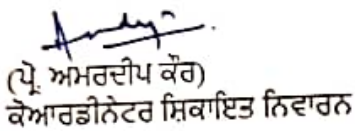 (ਪ੍ਰੋ. ਅਮਰਦੀਪ ਕੌਰ)
ਕੋਆਰਡੀਨੇਟਰ ਸ਼ਿਕਾਇਤ ਨਿਵਾਰਨ